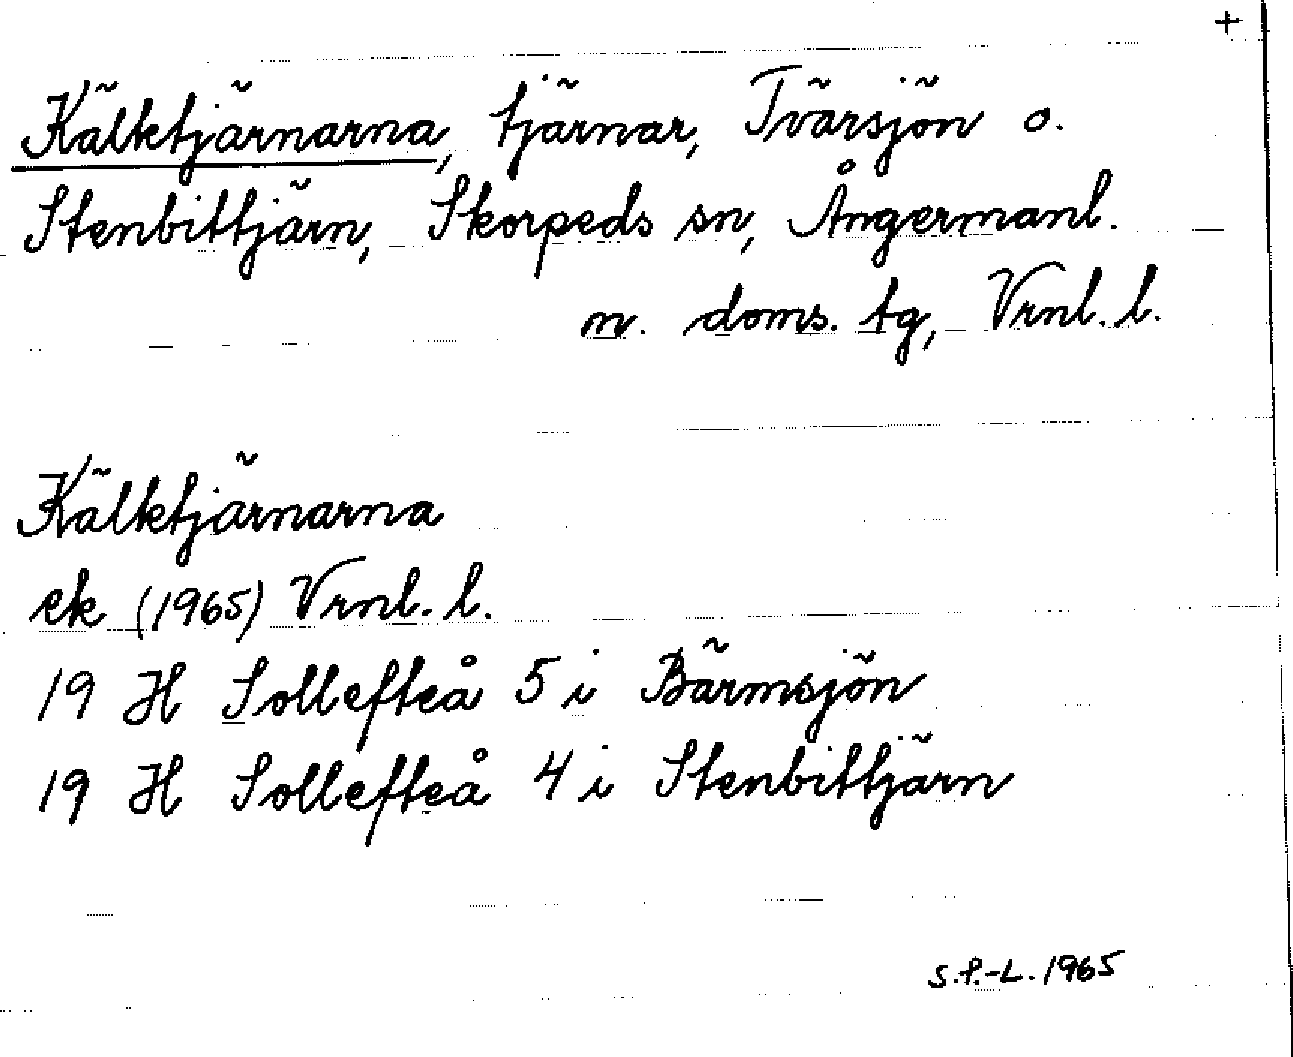 +
Kälktjärnarna, tjärnar, Tvärsjön o.
Stenbittjärn, Skorpeds sn, Ångermanl.
n. doms. tg, Vrnl. l.
Kälktjärnarna
ek (1965) Vrnl. l.
19 H Sollefteå 5 i Bärmsjön
19 H Sollefteå 4 i Stenbittjärn
S.P.-L. 1965